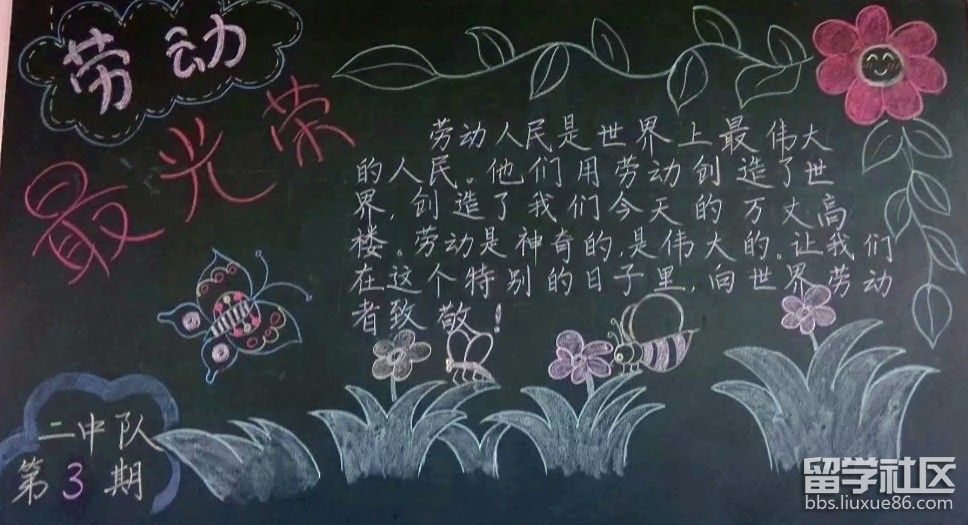 劳动
最光荣
劳动人民是世界上最伟大
的人民。他们用劳动创造了世
界,创造了我们今天的万丈高
楼。劳动是神奇的,是伟大的。让我们
在这个特别的日子里,向世界劳动
者致敬!
二中队
第3期
留学社区
bbs.liuxue86.com